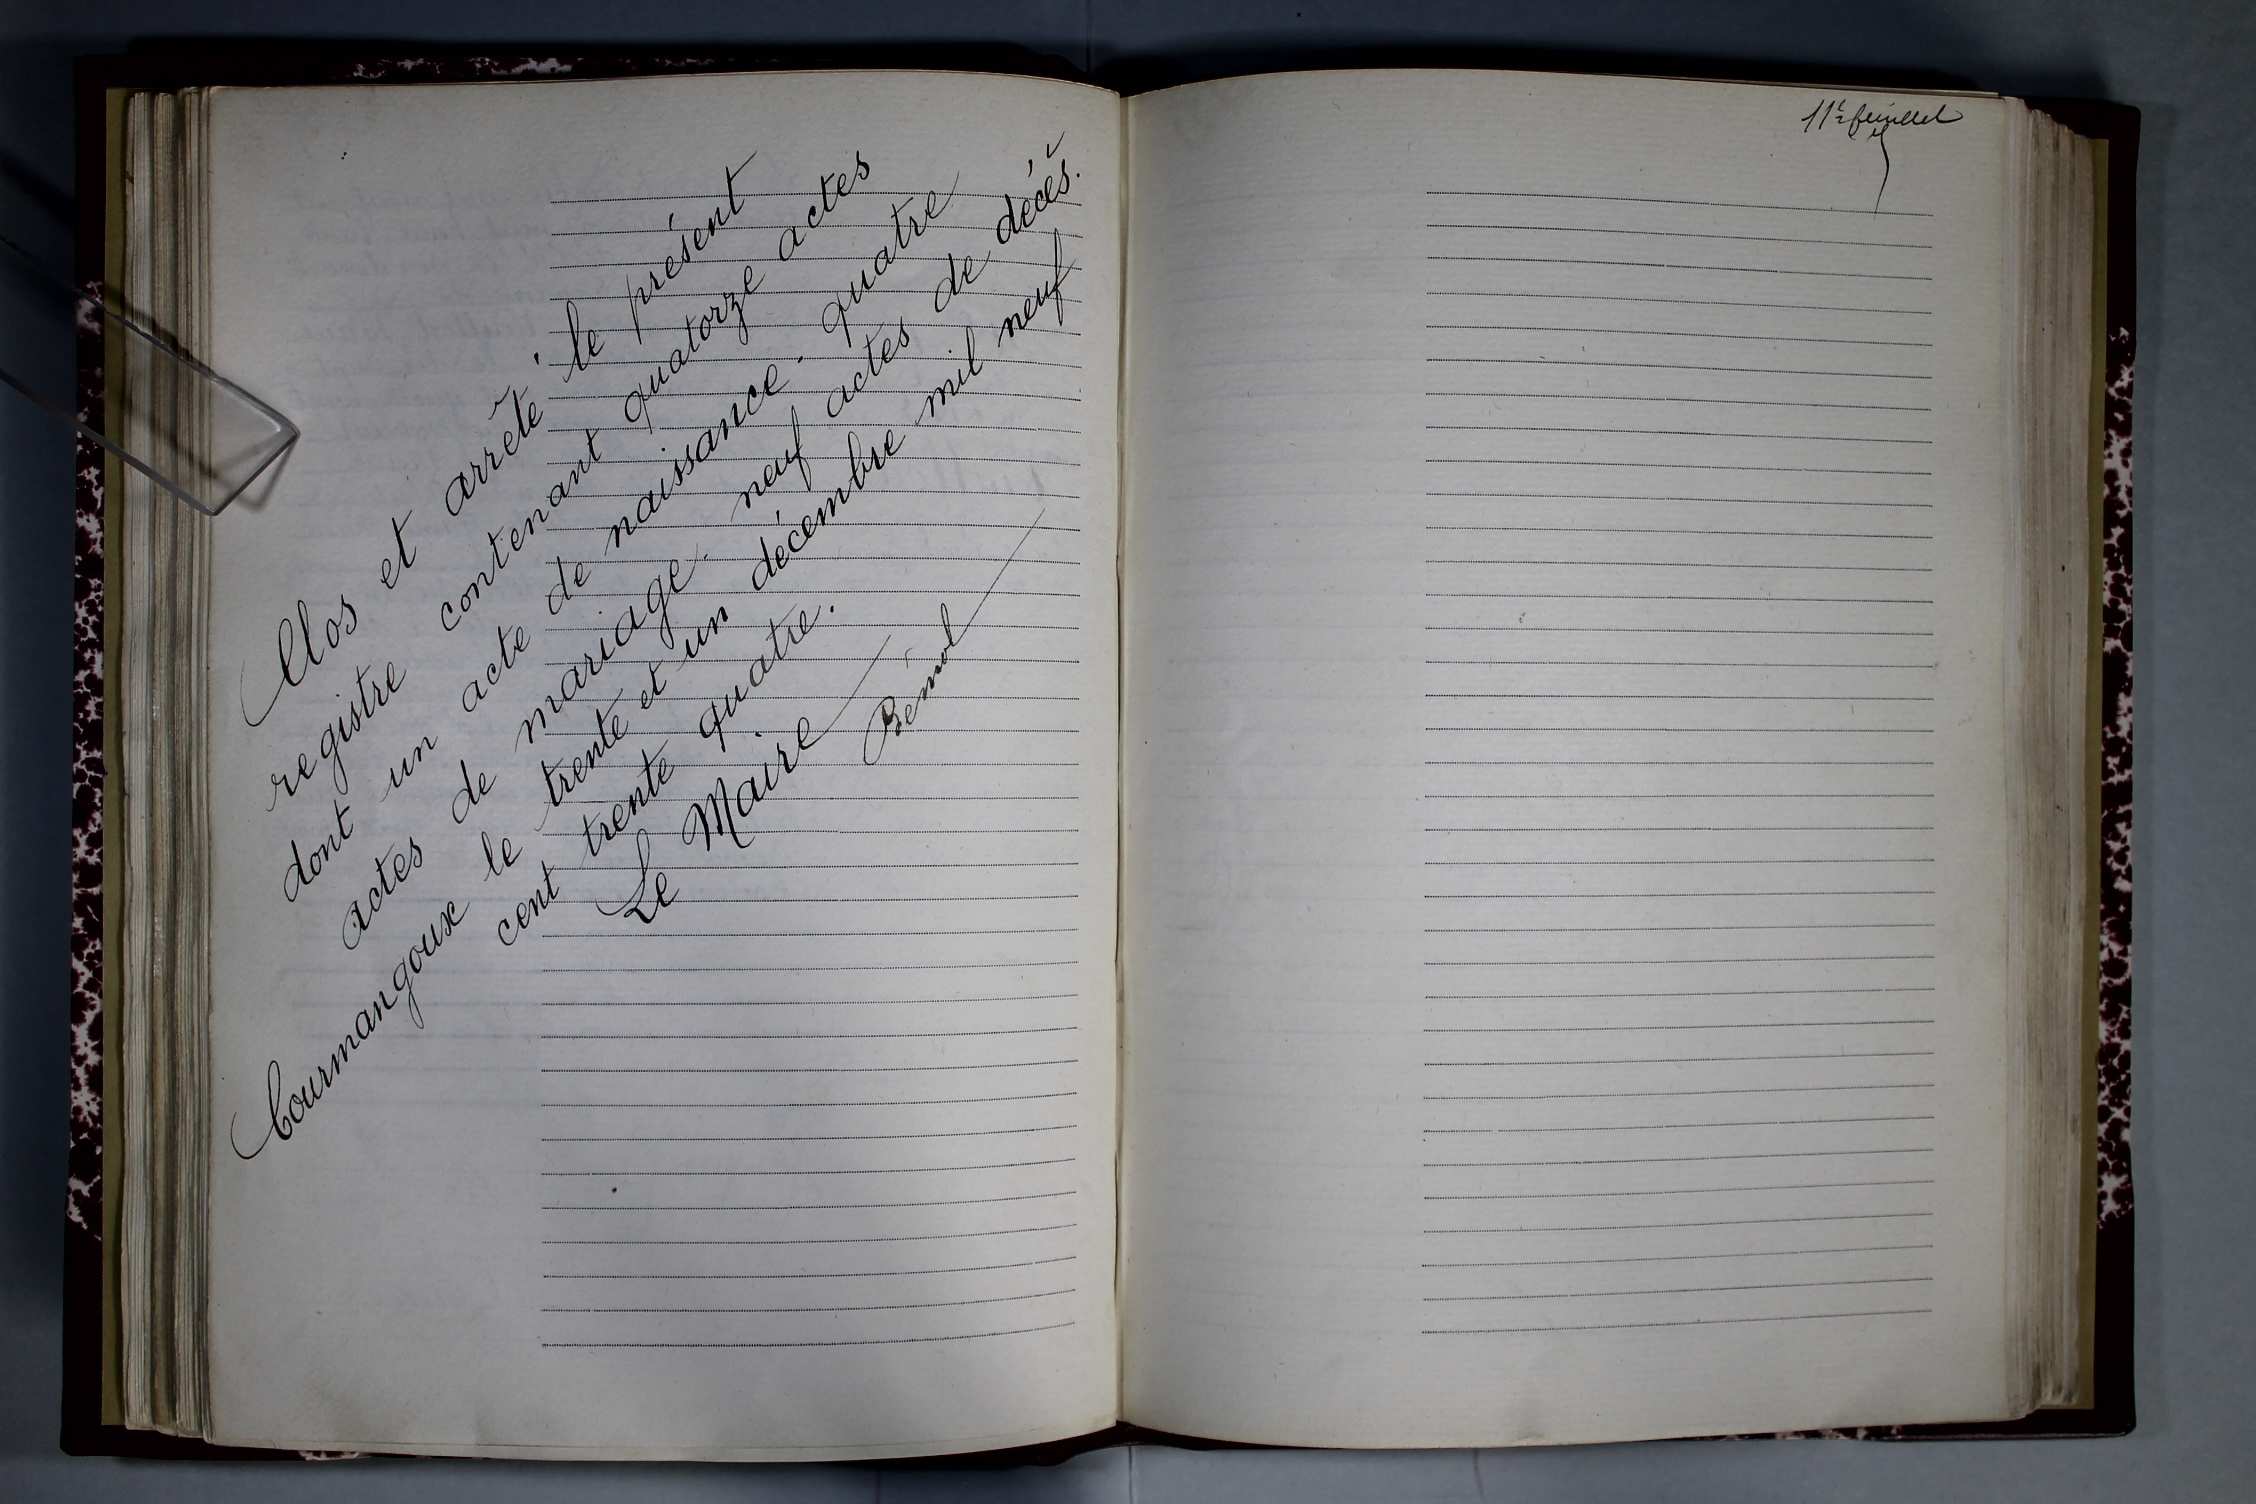 Clos et arrêté, le présent
registre contenant quatorze actes
dont un acte de naissance. quatre
actes de mariage. neuf actes de décès.
Courmangoux le trente et un décembre mil neuf
cent trente quatre.
Le Maire
11e feuillet